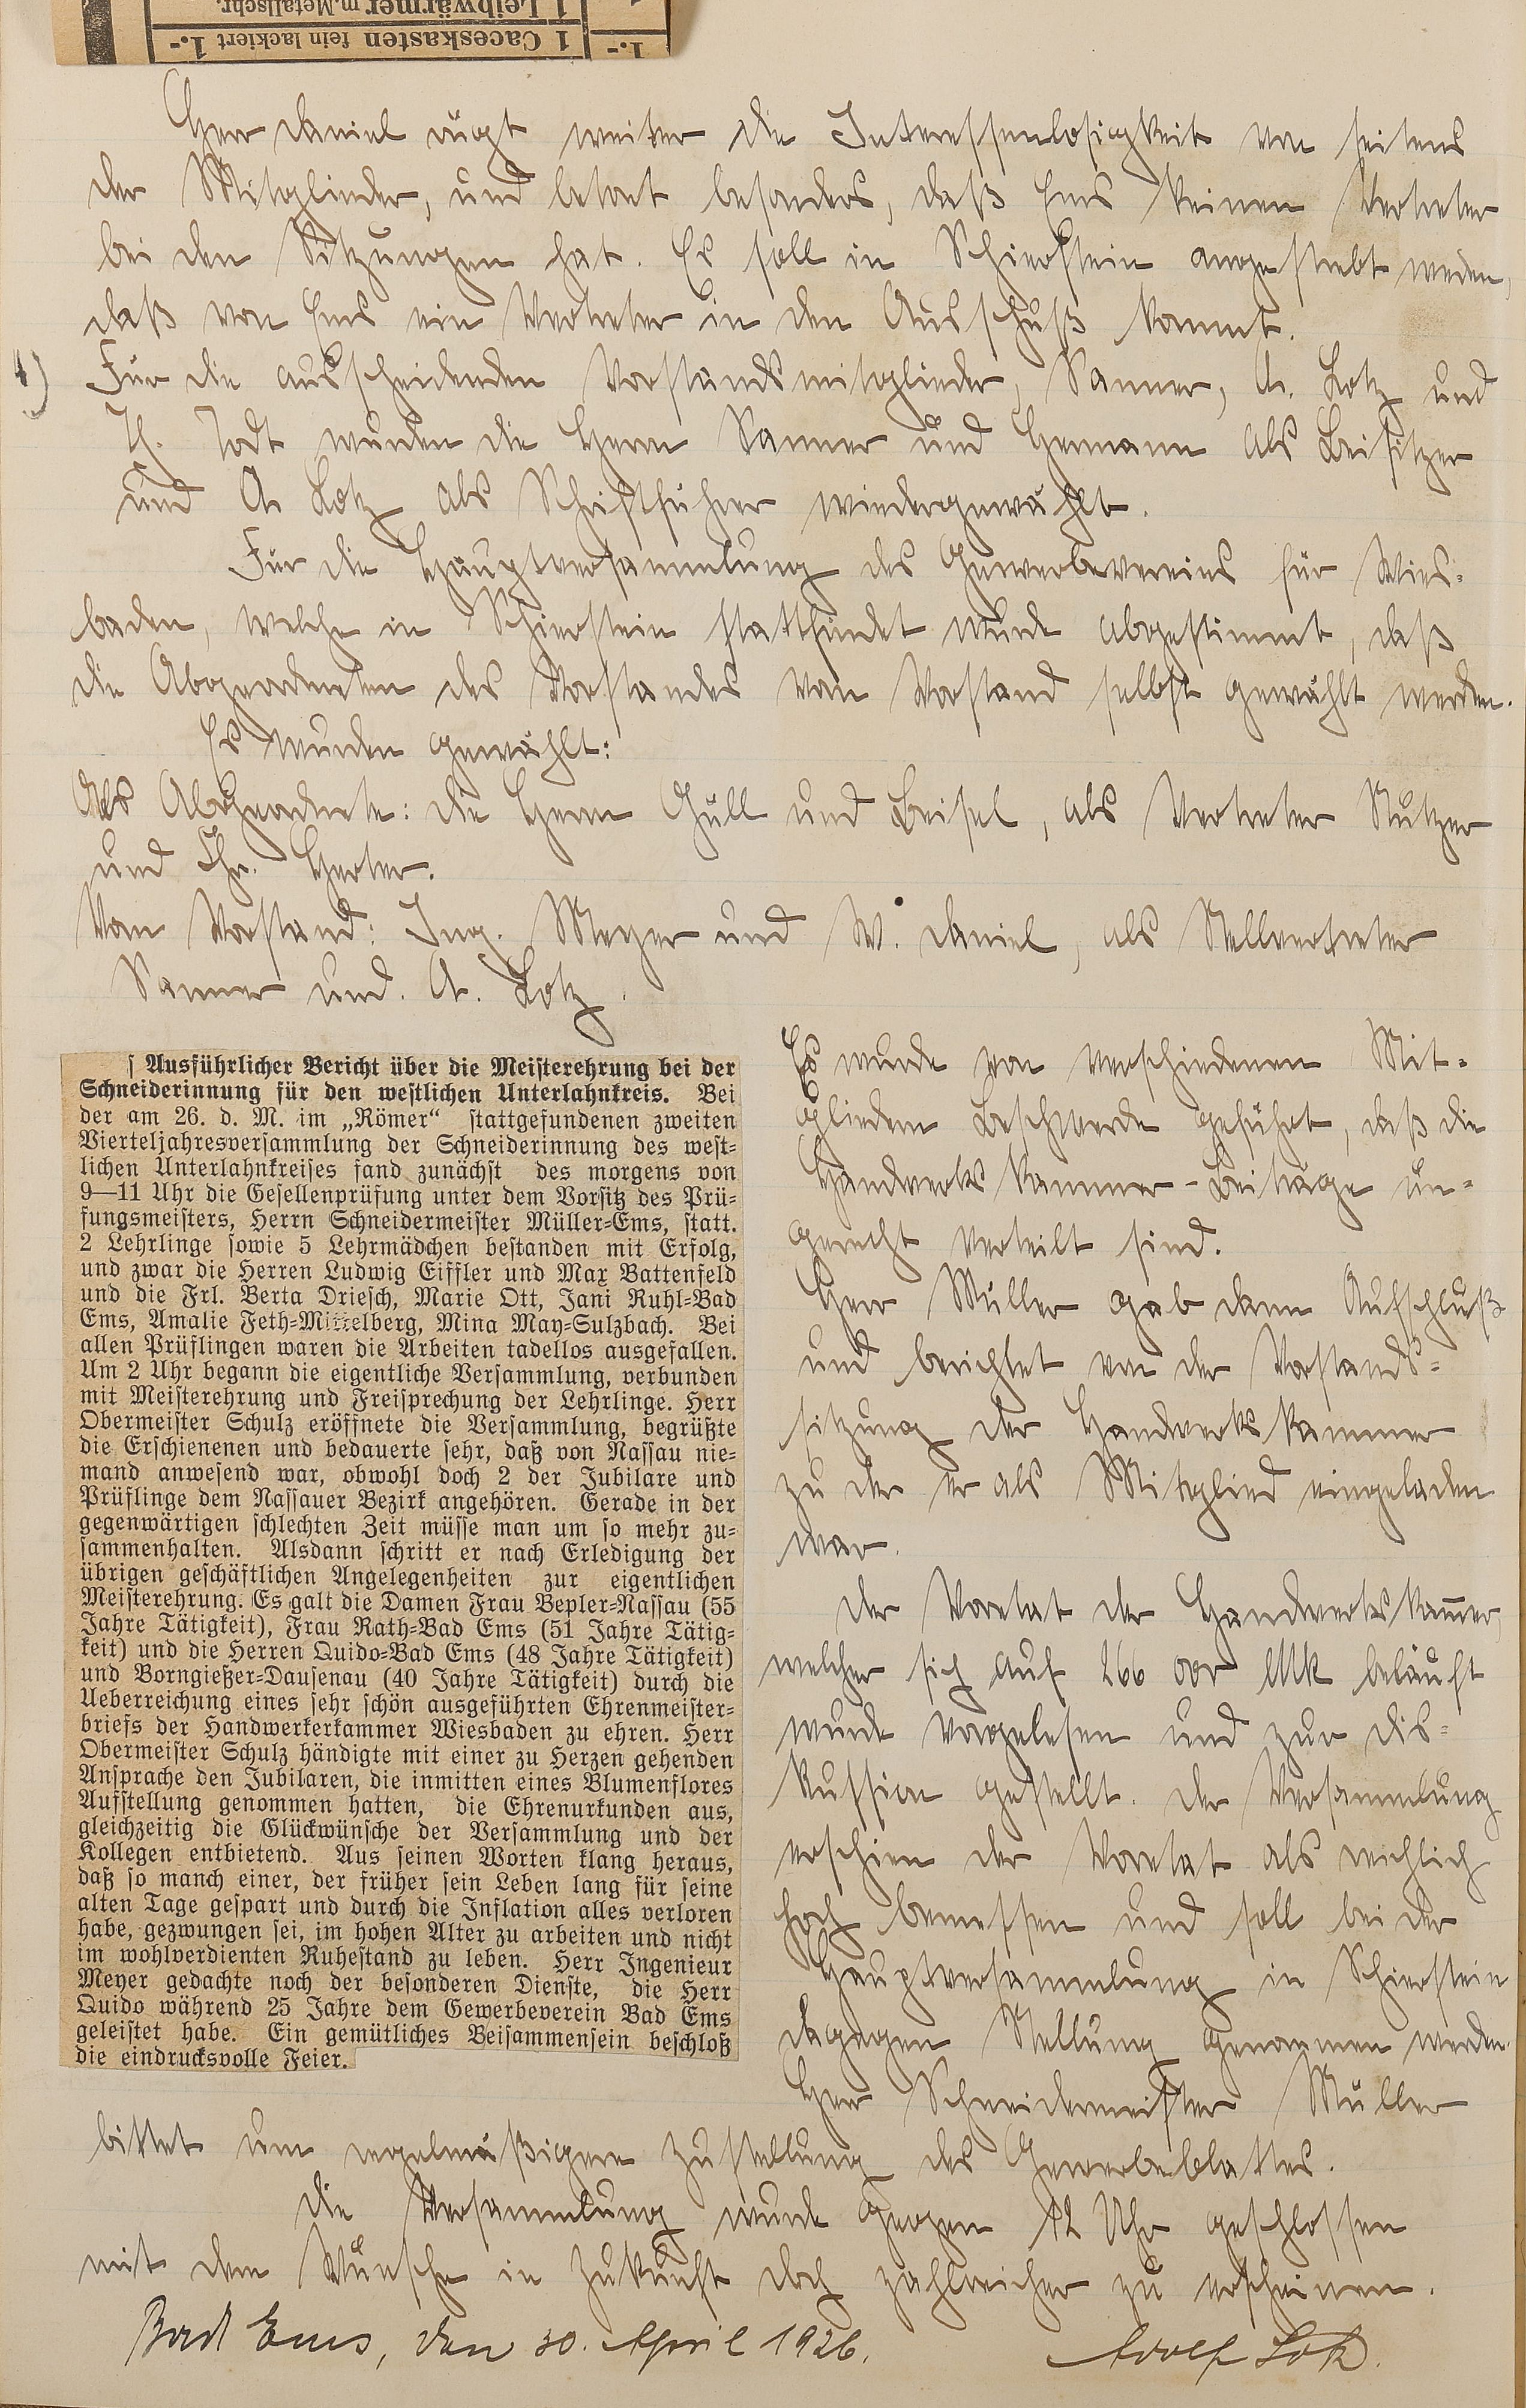 1 Leibwärmer m. Metallschr.
1 Caceskasten fein lackiert 1.-
1.-
Herr Daniel rügt weiter die Interessenlosigkeit von seitens
der Mitglieder, und betont besonders, daß Ems keinen Vertreter
bei den Sitzungen hat. Es soll in Schierstein angestrebt werden,
daß von Ems ein Vertreter in den Ausschuß kommt.
4) Für die ausscheidenden Vorstandsmitglieder, Sanner, A. Lotz und
H. Jodt wurden die Herrn Sanner und Hermann als Beisitzer
und A. Lotz als Schriftführer wiedergewählt.
Für die Hauptversammlung des Gewerbevereins für Wies-
baden, welche in Schierstein stattfindet wurde abgestimmt, daß
die Abgeordneten des Vorstandes vom Vorstand selbst gewählt werden.
Es wurden gewählt:
Als Abgeordnete: die Herrn Güll und Beisel, als Vertreter Nutzer
und Chr. Herter.
Vom Vorstand: Ing. Meyer und W. Daniel, als Stellvertreter
Sanner und A. Lotz.
Ausführlicher Bericht über die Meisterehrung bei der
Schneiderinnung für den westlichen Unterlahnkreis. Bei
der am 26. d. M. im „Römer“ stattgefundenen zweiten
Vierteljahresversammlung der Schneiderinnung des west-
lichen Unterlahnkreises fand zunächst des morgens von
9—11 Uhr die Gesellenprüfung unter dem Vorsitz des Prü-
fungsmeisters, Herrn Schneidermeister Müller-Ems, statt.
2 Lehrlinge sowie 5 Lehrmädchen bestanden mit Erfolg,
und zwar die Herren Ludwig Eiffler und Max Battenfeld
und die Frl. Berta Driesch, Marie Ott, Jani Ruhl-Bad
Ems, Amalie Feth-Mittelberg, Mina May-Sulzbach. Bei
allen Prüflingen waren die Arbeiten tadellos ausgefallen.
Um 2 Uhr begann die eigentliche Versammlung, verbunden
mit Meisterehrung und Freisprechung der Lehrlinge. Herr
Obermeister Schulz eröffnete die Versammlung, begrüßte
die Erschienenen und bedauerte sehr, daß von Nassau nie-
mand anwesend war, obwohl doch 2 der Jubilare und
Prüflinge dem Nassauer Bezirk angehören. Gerade in der
gegenwärtigen schlechten Zeit müsse man um so mehr zu-
sammenhalten. Alsdann schritt er nach Erledigung der
übrigen geschäftlichen Angelegenheiten zur eigentlichen
Meisterehrung. Es galt die Damen Frau Bepler-Nassau (55
Jahre Tätigkeit), Frau Rath-Bad Ems (51 Jahre Tätig-
keit) und die Herren Quido-Bad Ems (48 Jahre Tätigkeit)
und Borngießer-Dausenau (40 Jahre Tätigkeit) durch die
Ueberreichung eines sehr schön ausgeführten Ehrenmeister-
briefs der Handwerkerkammer Wiesbaden zu ehren. Herr
Obermeister Schulz händigte mit einer zu Herzen gehenden
Ansprache den Jubilaren, die inmitten eines Blumenflores
Aufstellung genommen hatten, die Ehrenurkunden aus,
gleichzeitig die Glückwünsche der Versammlung und der
Kollegen entbietend. Aus seinen Worten klang heraus,
daß so manch einer, der früher sein Leben lang für seine
alten Tage gespart und durch die Inflation alles verloren
habe, gezwungen sei, im hohen Alter zu arbeiten und nicht
im wohlverdienten Ruhestand zu leben. Herr Ingenieur
Meyer gedachte noch der besonderen Dienste, die Herr
Quido während 25 Jahre dem Gewerbeverein Bad Ems
geleistet habe. Ein gemütliches Beisammensein beschloß
die eindrucksvolle Feier.
Es wurde von verschiedenen Mit-
gliedern Beschwerde geführt, daß die
Handwerkskammer-Beiträge un-
gerecht verteilt sind.
Herr Müller gab dann Aufschluß
und berichtet von der Vorstands-
sitzung der Handwerkskammer
zu der er als Mitglied eingeladen
war.
Der Voretat der Handwerkskammer,
welcher sich auf 266 000 Mk beläuft
wurde vorgelesen und zur Dis-
kussion gestellt. Der Versammlung
erschien der Voretat als reichlich
hoch bemessen und soll bei der
Hauptversammlung in Schierstein
dagegen Stellung genommen werden.
Herr Schneidermeister Müller
bittet um regelmäßigere Zustellung des Gewerbeblattes.
Die Versammlung wurde gegen 12 Uhr geschlossen
mit dem Wunsche in Zukunft doch zahlreicher zu erscheinen.
Bad Ems, den 30. April 1926. Adolf Lotz.